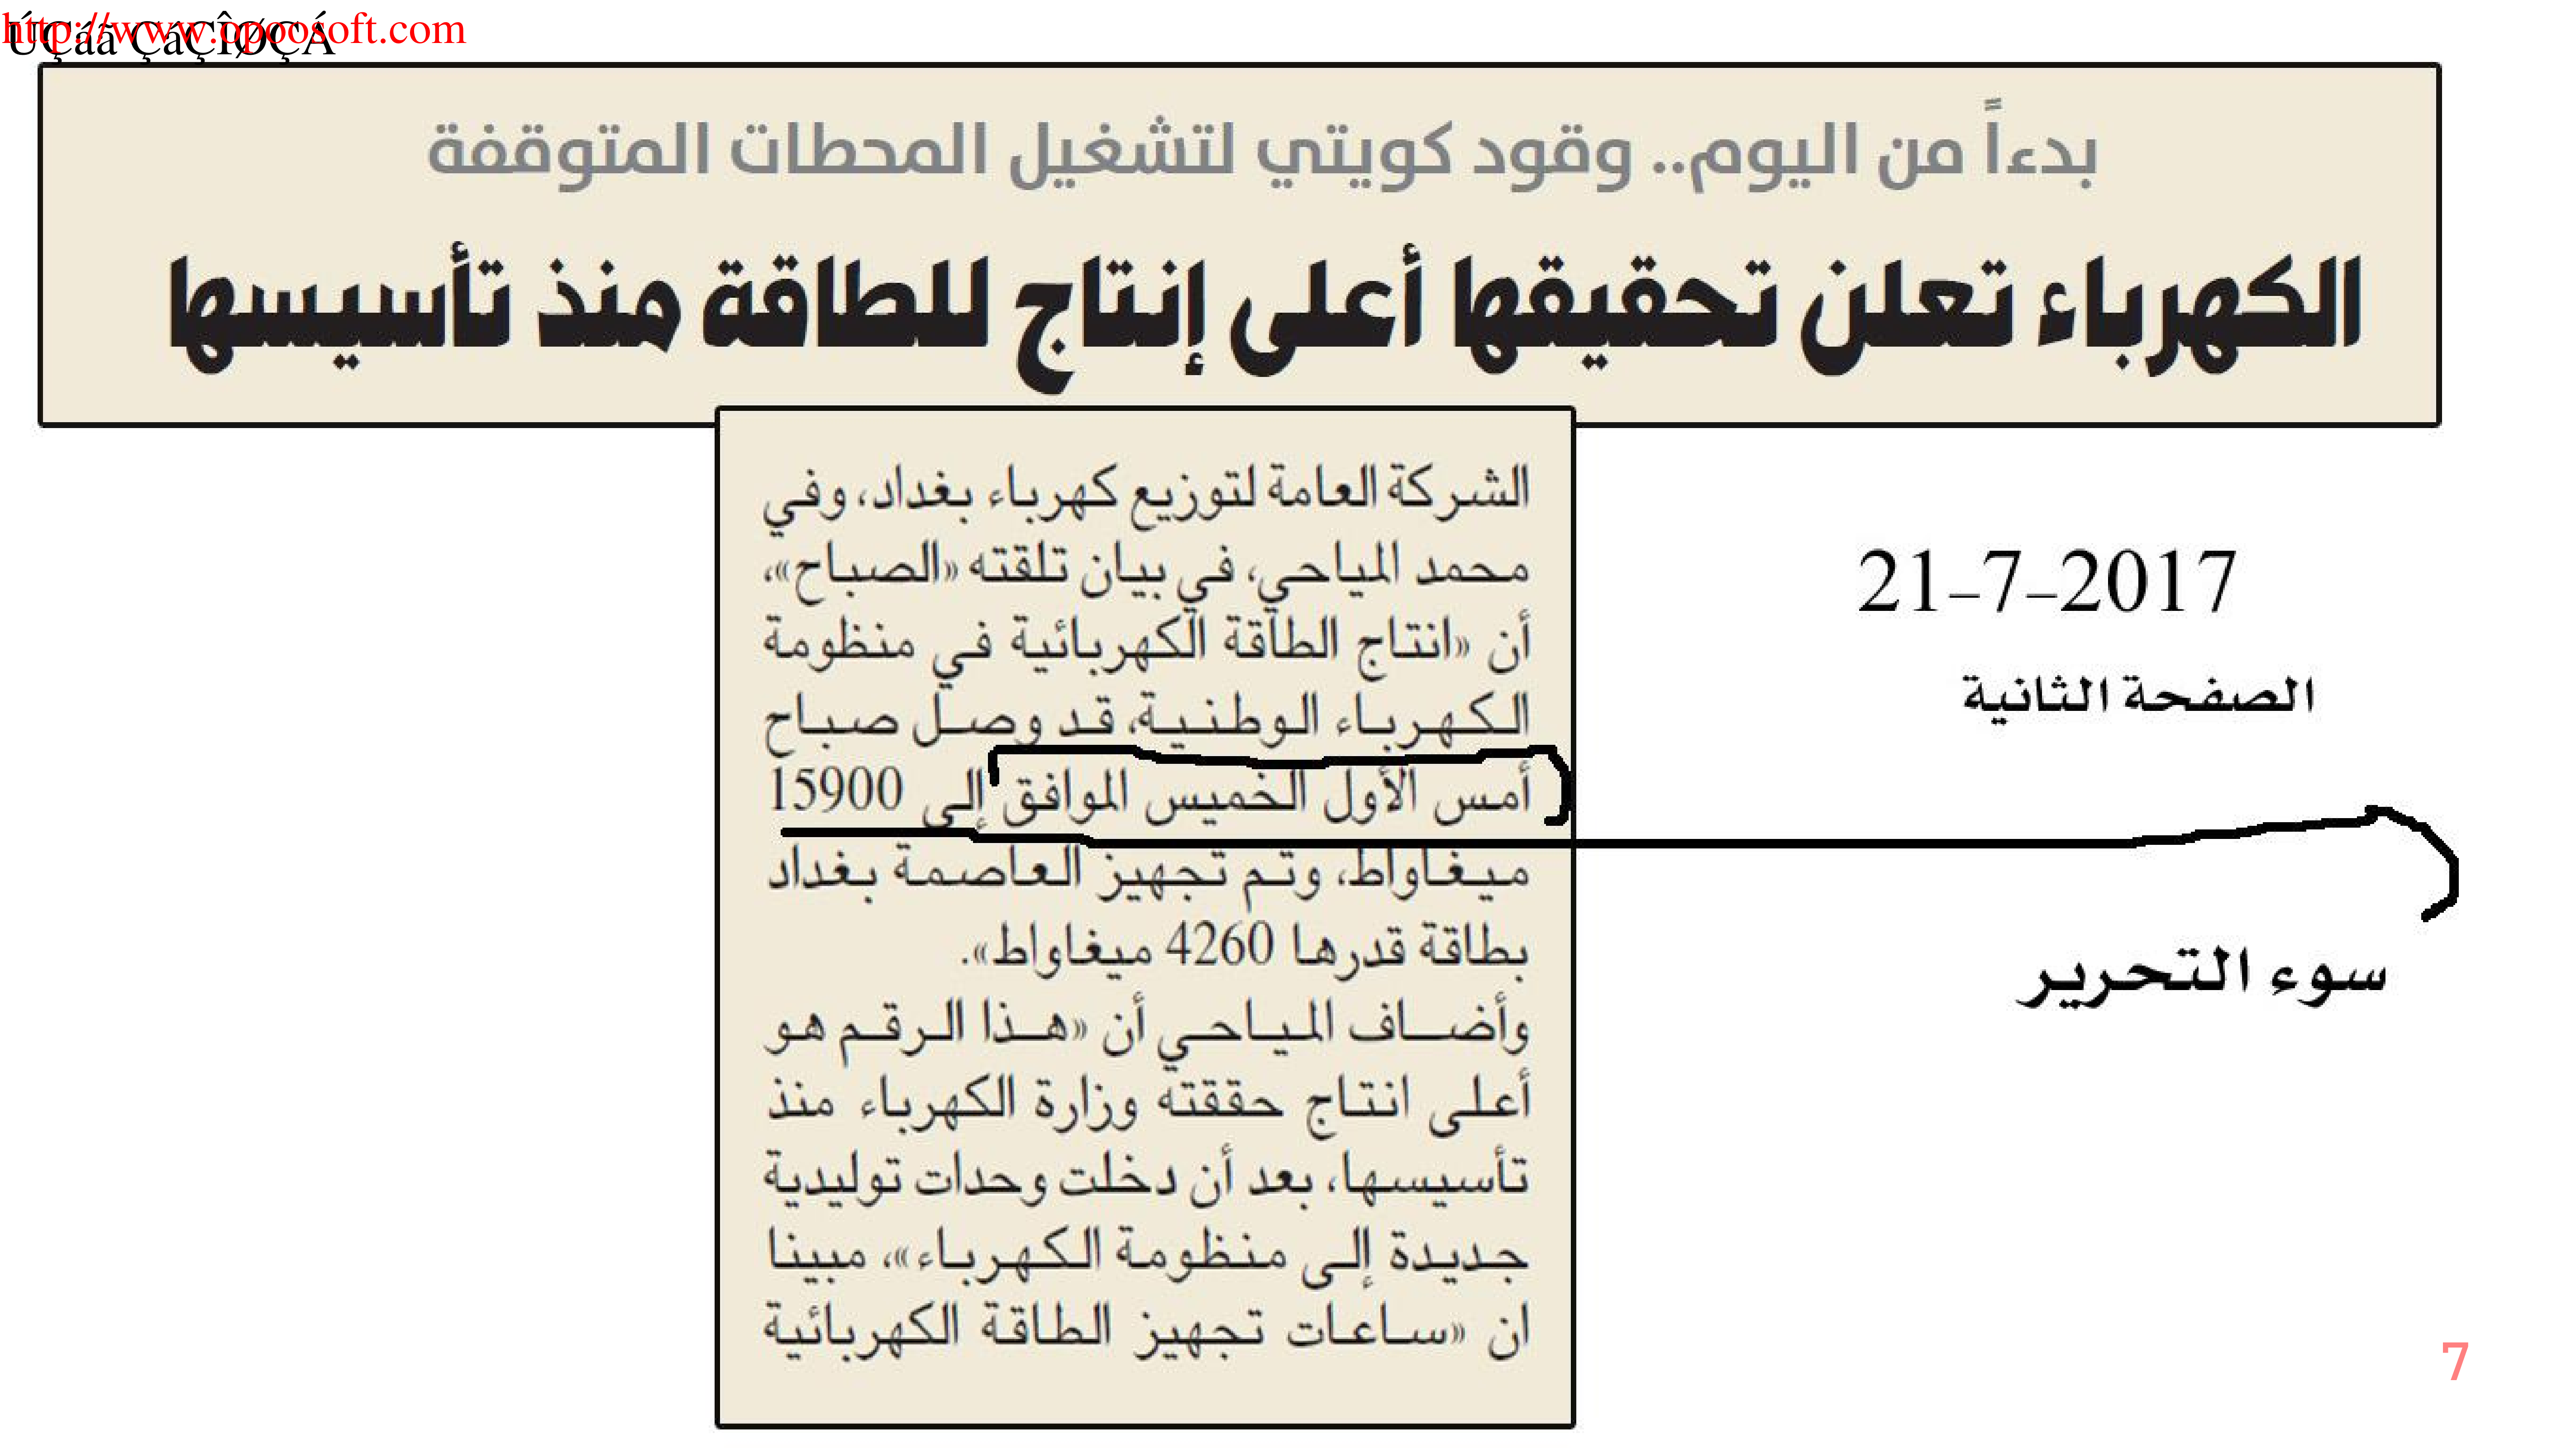 http://www.opoosoft.com
ÚÇáã ÇáÇÎØÇÁ
بدءاً من اليوم.. وقود كويتي لتشغيل المحطات المتوقفة
الكهرباء تعلن تحقيقها أعلى إنتاج للطاقة منذ تأسيسها
الشركة العامة لتوزيع كهرباء بغداد، وفي
محمد المياحي، في بيان تلقته «الصباح»،
أن «انتاج الطاقة الكهربائية في منظومة
الكهرباء الوطنية، قد وصل صباح
أمس الأول الخميس الموافق إلى 15900
ميغاواط، وتم تجهيز العاصمة بغداد
بطاقة قدرها 4260 ميغاواط».
وأضاف المياحي أن «هذا الرقم هو
أعلى انتاج حققته وزارة الكهرباء منذ
تأسيسها، بعد أن دخلت وحدات توليدية
جديدة إلى منظومة الكهرباء»، مبينا
ان «ساعات تجهيز الطاقة الكهربائية
21-7-2017
الصفحة الثانية
سوء التحرير
7